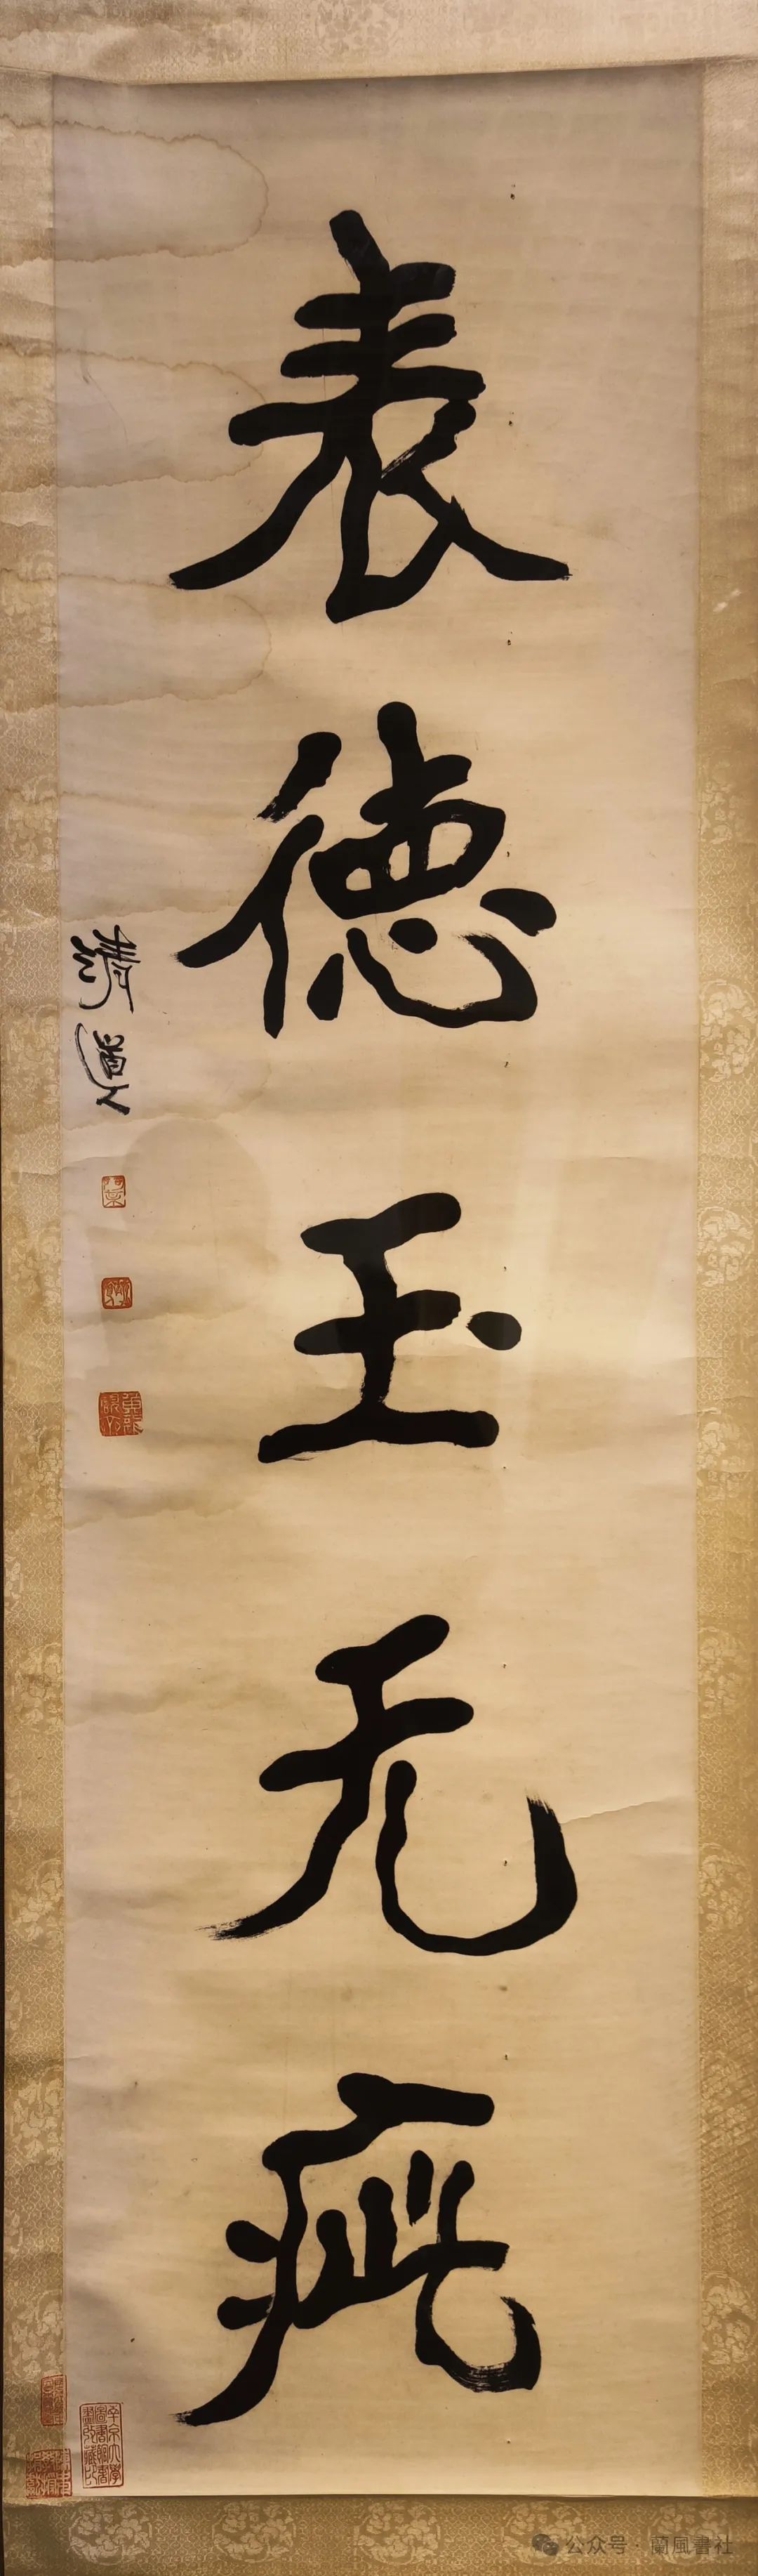 表德玉无疵
清道人
公众号·蘭風書社